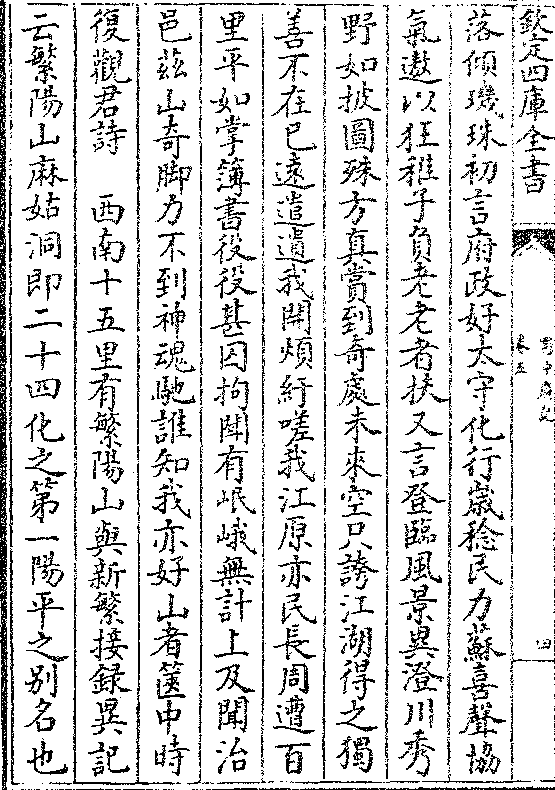 欽定四庫全書
蜀中廣記
卷五
四
落傾璣珠初言府政好太守化行歲稔民力蘇喜聲協
氣遨以狂稚子負老老者扶又言登臨風景異澄川秀
野如披圖殊方真賞到奇處未來空只誇江湖得之獨
善不在已遠遣遺我開煩紆嗟我江原亦民長周遭百
里平如掌簿書役役甚囚拘陡有岷峨無計上及聞治
邑茲山奇脚力不到神魂馳誰知我亦好山者篋中時
復觀君詩　西南十五里有繁陽山與新繁接録異記
云繁陽山麻姑洞即二十四化之第一陽平之别名也